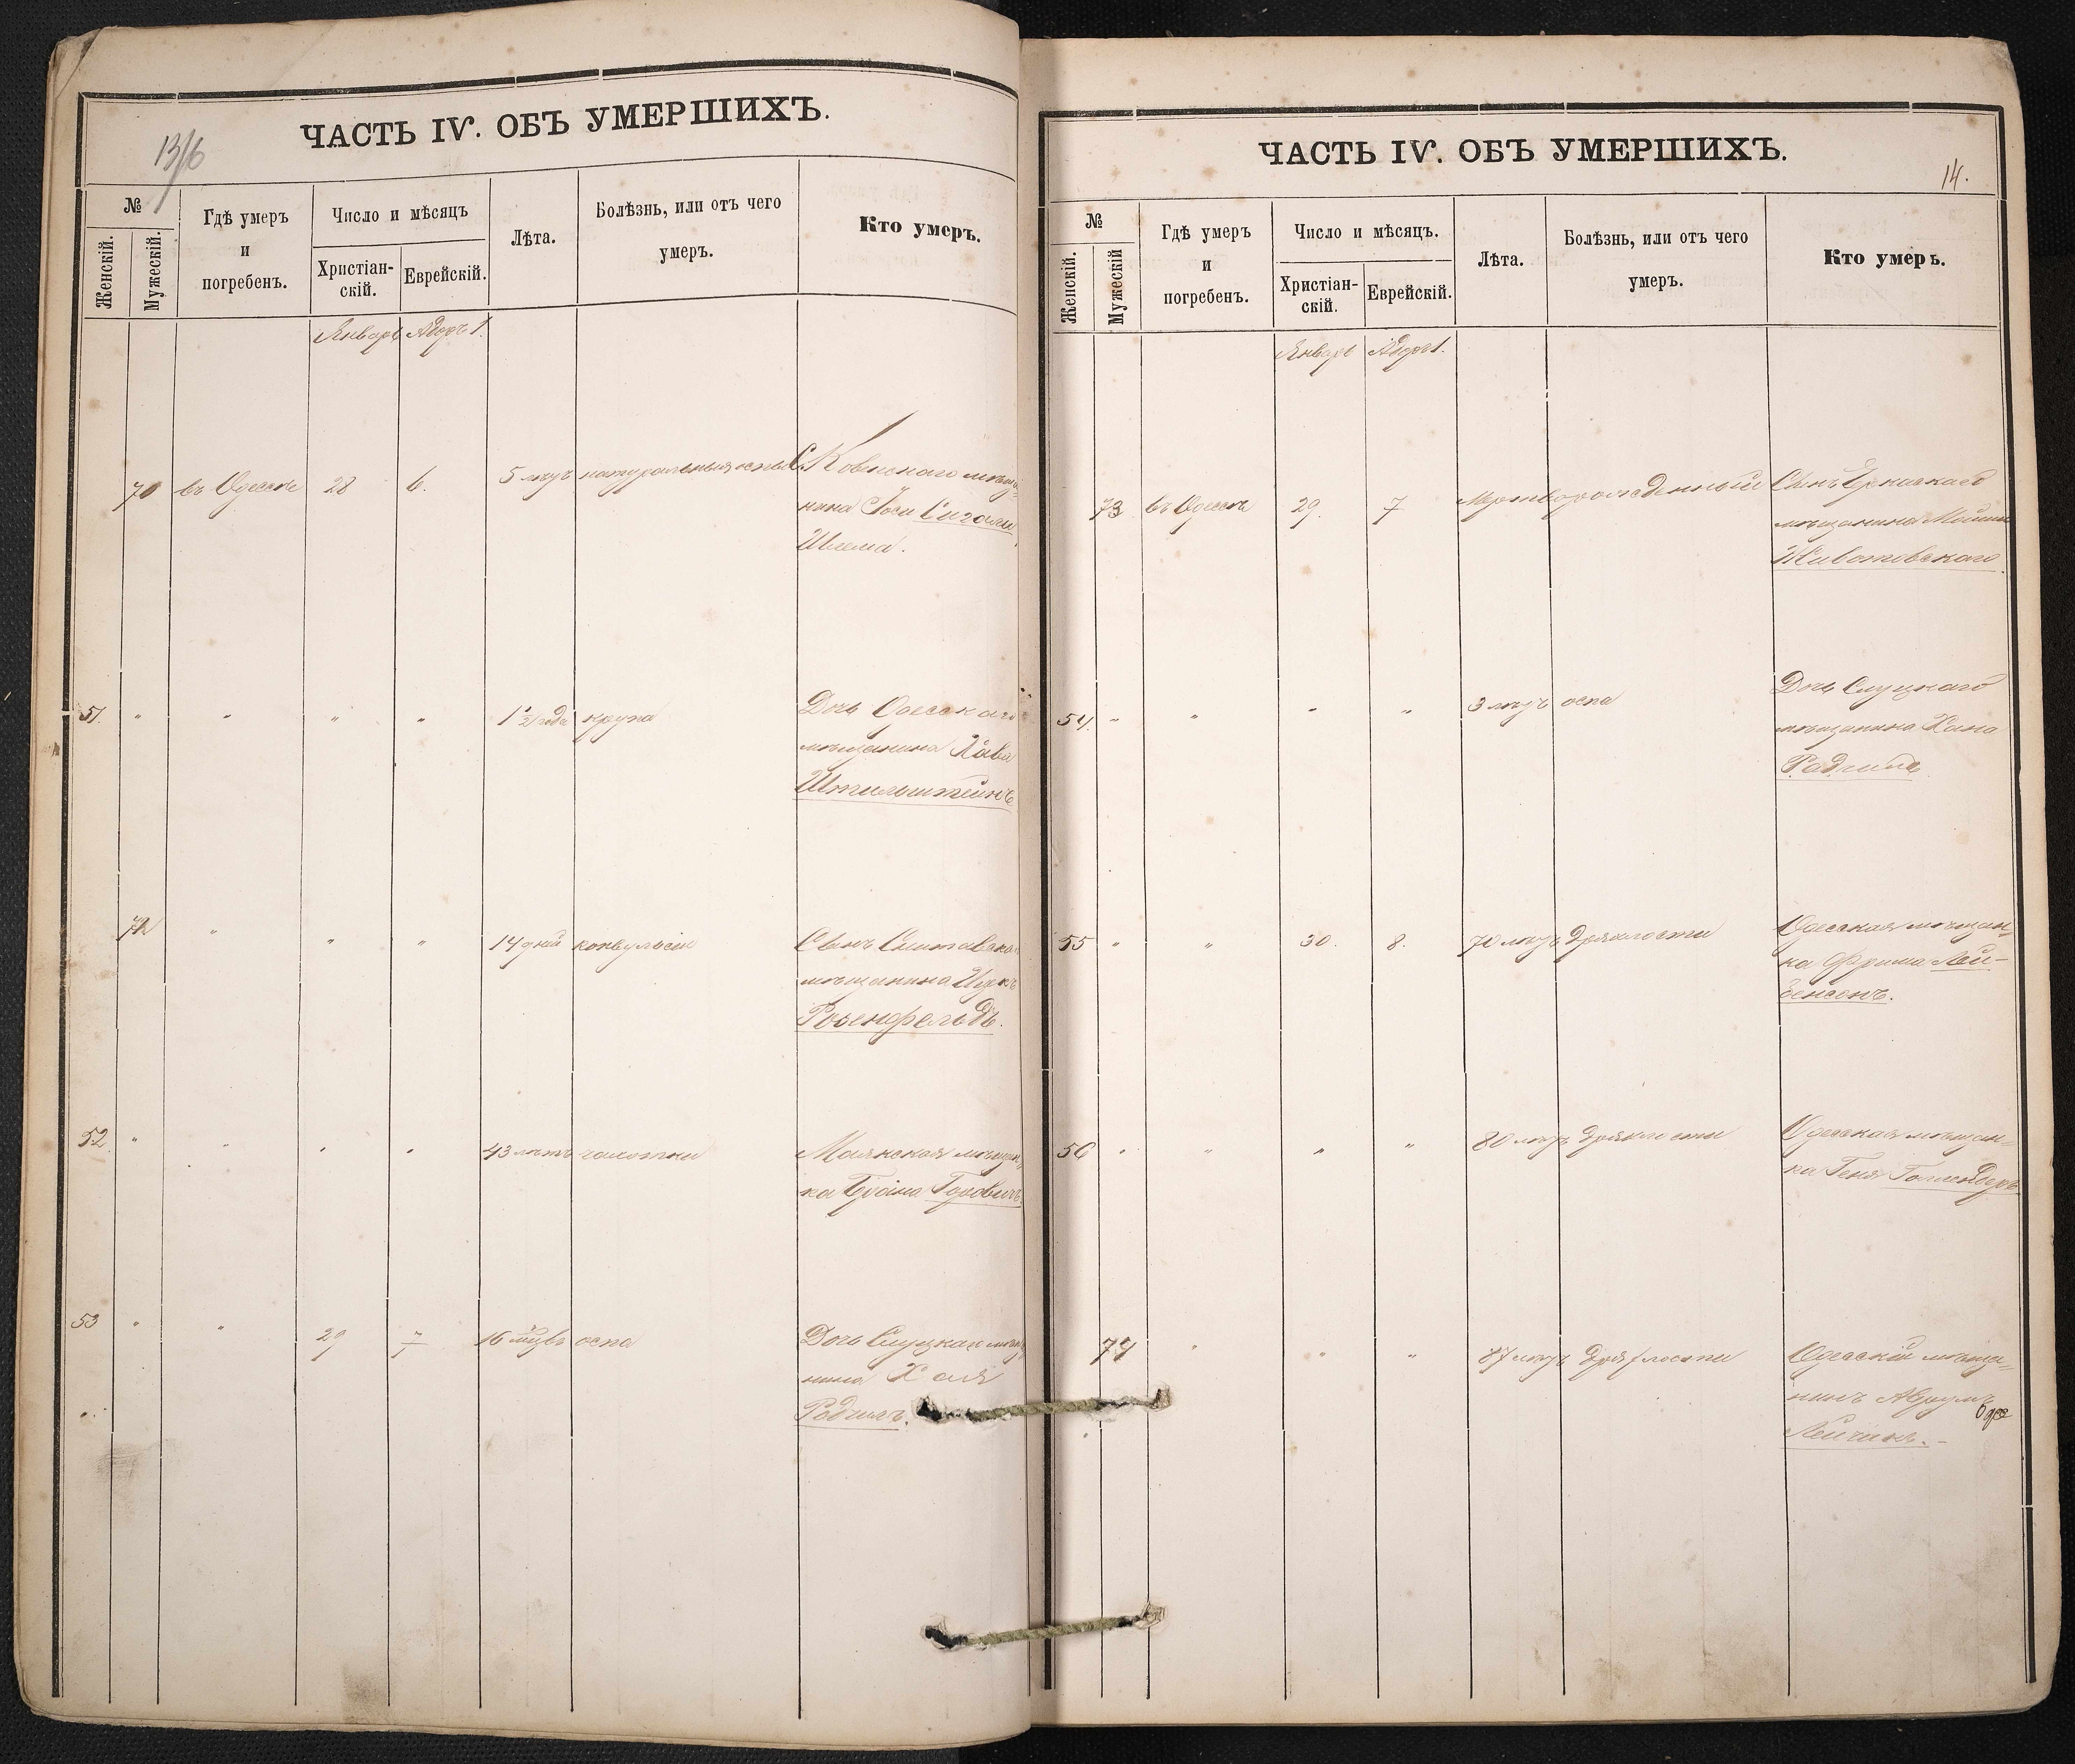 ЧАСТЬ IV. ОБЪ УМЕРШИХЪ.
13/6
№
Женскій.
Мужескій.
Гдѣ умеръ
и
погребенъ.
Число и мѣсяцъ
Христіан-
скій.
Еврейскій.
Лѣта.
Болѣзнь, или отъ чего
умеръ.
Кто умеръ.
Январь Адоръ 1.
70 въ Одессѣ 28 6. 5 лѣтъ натуральныя оспы С. Ковенскаго мѣща-
нина
51. " " " " 1 1/2 года крупа Дочь Одесскаго
мѣщанина Хава
Штильштейнъ
" " " 14 дней конвульсіи Сынъ
мѣщанина Ицкъ
Розенфельдъ.
52 " " " " 43 лѣтъ чахотки Маякская мѣщан-
ка Гуровичъ.
53 " " 29 7 16 мцвъ оспа Дочь Слуцкаго мѣща-
нина Хая
Родзилъ.
ЧАСТЬ IV. ОБЪ УМЕРШИХЪ.
14.
№
Женскій.
Мужескій
Гдѣ умеръ
и
погребенъ.
Число и мѣсяцъ.
Христіан-
скій.
Еврейскій.
Лѣта.
Болѣзнь, или отъ чего
умеръ.
Кто умеръ.
Январь Адоръ 1.
73 въ Одессѣ 29. 7 Мертворожденный Сынъ
мѣщанина
Животовскаго
54. " " " " 3 лѣтъ оспа Дочь Слуцкаго
мѣщанина Хана
55 " " 30. 8. 70 лѣтъ дряхлости Одесская мѣщан-
ка Фрима Лей-
бензонъ.
56 " " " " 80 лѣтъ дряхлости Одесская мѣщан-
ка Геня Голлендеръ
74 " " " 87 лѣтъ дряхлости Одесскій мѣща-
нинъ Аврумъ